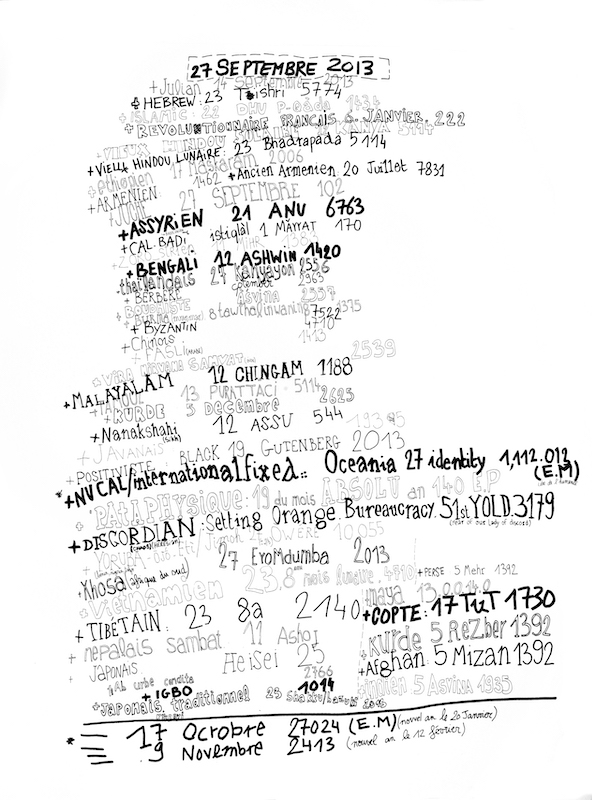 27 SEPTEMBRE 2013
+Julian 14 Septembre 2013
+HEBREW: 23 Tishri 5774
+ISLAMIC 22 DHU
+REVOLUTIONNAIRE FRANCAIS 6 JANVIER. 222
+VIEUX HINDOU 5114
+VIEUX HINDOU LUNAIRE: 23 Bhadrapada 5114
+ethiopien 17 Maskaram 2006
+ARMENIEN 1462 +Ancien Armenien 20 Juillet 7831
27 SEPTEMBRE 102
+ASSYRIEN 21 ANU 6763
+CAL. BADI istiqlàl 1 MAYYAT 170
+BENGALI 12 ASHWIN 1420
+thailandais 27 Kanyayon 2556
+BERBERE 2963
ASVINA 2557
8 tawthalinwaning 1375
+BYZANTIN 7522
+Chinois 4710
+FASLI 1413
+VIRA NIRVANA SAMVAT 2539
+MALAYALAM 12 CHINGAM 1188
+TAMOUL 13 PURATTACI 5114
+KURDE 5 Decembre 2623
+Nanakshahi 12 ASSU 544
+JAVANAIS
+POSITIVISTE BLACK 19 GUTENBERG 2013
*+NV CAL/international fixed:: Oceania 27 identity 1,112.012 (E.M)
+PATAPHYSIQUE: 19 du mois ABSOLU an 140 E.P
+DISCORDIAN: Setting Orange. Bureaucracy. 51st YOLD.3179
(year of our lady of discord)
+YORUBA OWERE 10,055
+Xhosa (afrique du sud) 27 EroMdumba 2013
+Vietnamien 23.8 mois lunaire. 4810
+PERSE 5 Mehr 1392
+maya 13.0.0
+TIBETAIN: 23 8a 2140
+COPTE: 17 TuT 1730
+nepalais sambat 11 Ashoj
+kurde 5 ReZber 1392
+JAPONAIS HeiSei 25
+Afghan 5 Mizan 1392
+Ab urbe condita 2766
+IGBO 1014
+indien 5 Asvina 1935
+Japonais traditionnel 23
* 17 Ocrobre 27024 (E.M) (nouvel an le 20 Janvier)
9 Novembre 2413 (nouvel an le 12 février)